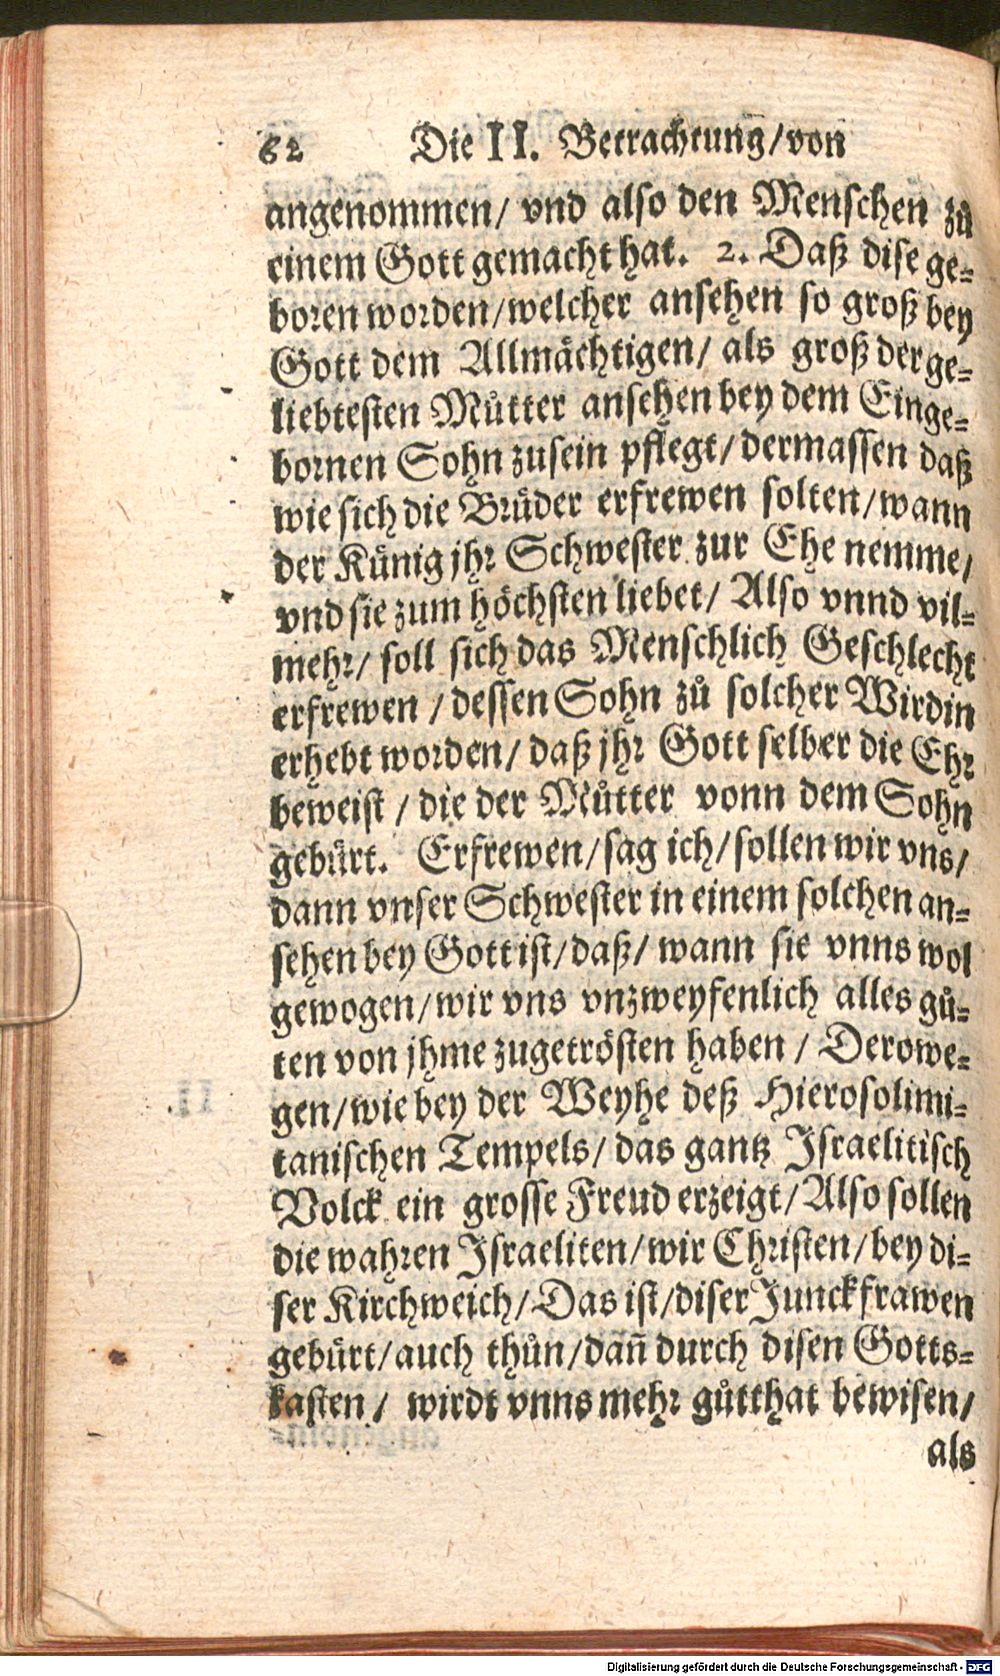 62 Die II. Betrachtung/von
angenommen/ vnd also den Menschen zů
einem Gott gemacht hat. 2. Daß dise ge-
boren worden/welcher ansehen so groß bey
Gott dem Allmächtigen/ als groß der ge-
liebtesten Můtter ansehen bey dem Einge-
bornen Sohn zusein pflegt/dermassen daß
wie sich die Brüder erfrewen solten/wann
der Künig jhr Schwester zur Ehe nemme/
vnd sie zum höchsten liebet/ Also vnnd vil-
mehr/ soll sich das Menschlich Geschlecht
erfrewen /dessen Sohn zů solcher Wirdin
erhebt worden/ daß jhr Gott selber die Ehr
beweist / die der Můtter vonn dem Sohn
gebürt. Erfrewen/sag ich/sollen wir vns/
dann vnser Schwester in einem solchen an-
sehen bey Gott ist/daß/ wann sie vnns wol
gewogen/wir vns vnzweyfenlich alles gů-
ten von jhme zugetrösten haben / Derowe-
gen/wie bey der Weyhe deß Hierosolimi-
tanischen Tempels/ das gantz Israelitisch
Volck ein grosse Freud erzeigt/Also sollen
die wahren Israeliten/wir Christen/bey di-
ser Kirchweich/Das ist/diser Junckfrawen
gebürt/auch thůn/dañ durch disen Gotts-
kasten/ wirdt vnns mehr gůtthat bewisen/
als
Digitalisierung gefördert durch die Deutsche Forschungsgemeinschaft - DFG